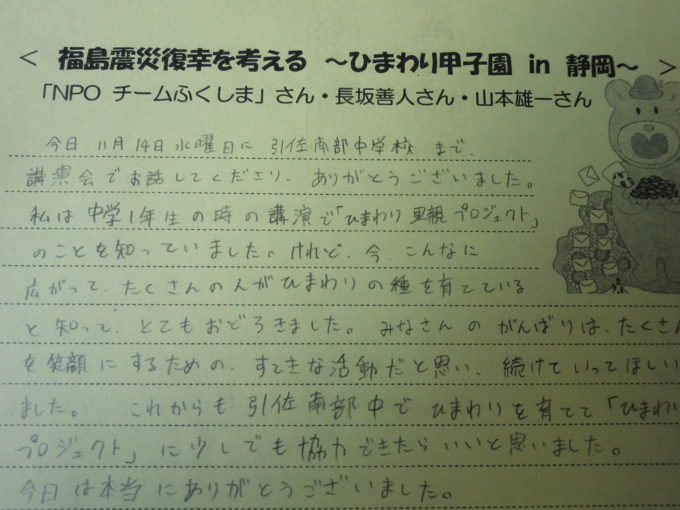 < 福島震災復幸を考える ～ひまわり甲子園 in 静岡～ >
「NPO チームふくしま」さん・長坂善人さん・山本雄一さん
今日 11月14日水曜日に 引佐南部中学校 まで、
講演会でお話してくださり、ありがとうございました。
私は中学1年生の時の講演で「ひまわり里親プロジェクト」
のことを知っていました。けれど、今、こんなに
広がって、たくさんの人がひまわりの種を育てている
と知って、とてもおどろきました。みなさんのがんばりは、たくさ
を笑顔にするための、すてきな活動だと思い、続けていってほしい
ました。 これからも引佐南部中でひまわりを育てて「ひまわ
プロジェクト」に少しでも協力できたらいいと思いました。
今日は本当にありがとうございました。